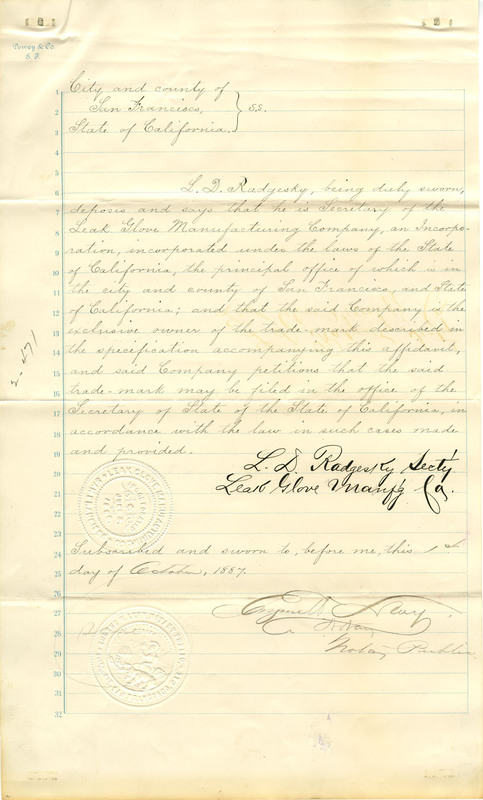 Dewey & Co.
S. F.
1 City and county of
2 San Francisco, } S.S.
3 State of California.
4
5
6 L. D. Radgesky, being duly sworn,
7 deposes and says that he is Secretary of the
8 Leak Glove Manufacturing Company, an Incorpo-
9 ration, incorporated under the laws of the State
10 of California, the principal office of which is in
11 the city and county of San Francisco, and State
12 of California; and that the said Company is the
13 exclusive owner of the trade-mark described in
14 the specification accompanying this affidavit,
15 and said Company petitions that the said
16 trade-mark may be filed in the office of the
17 Secretary of State of the State of California, in
18 accordance with the law in such cases made
19 and provided.
20 L. D. Radgesky Secty
21 Leak Glove Manfg Co.
22
23
24 Subscribed and sworn to, before me, this 1st
25 day of October, 1887.
26
27
28
29 Notary Public
30
31
32